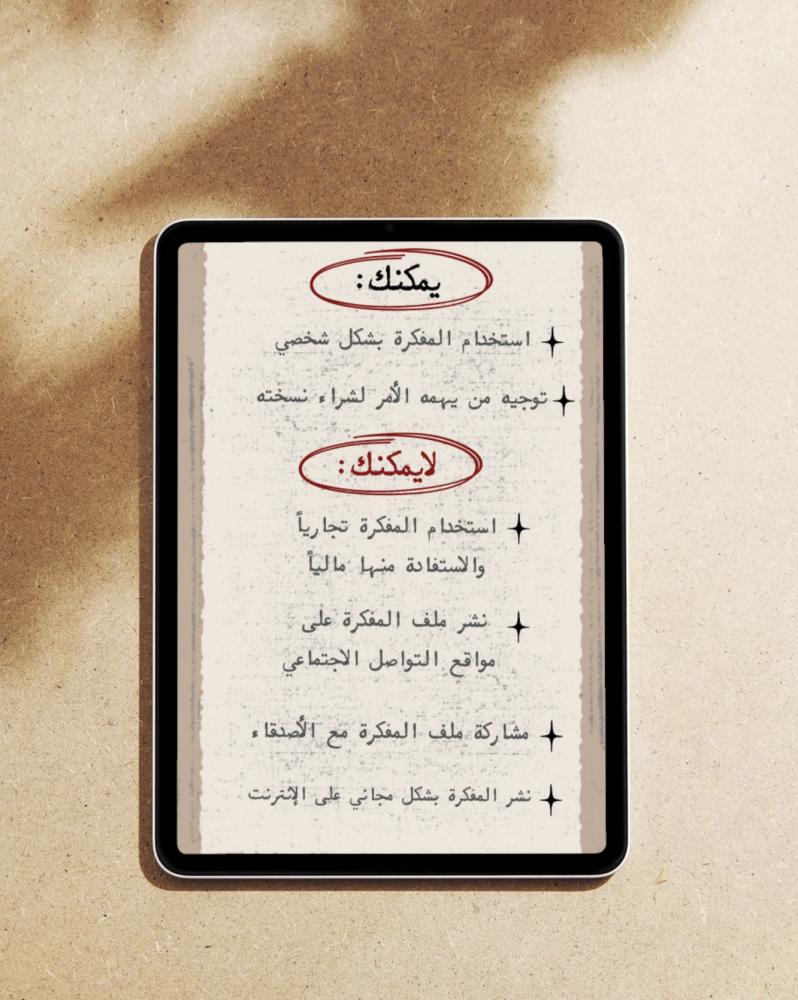 يمكنك:
استخدام المفكرة بشكل شخصي
توجيه من يهمه الأمر لشراء نسخته
لايمكنك:
استخدام المفكرة تجارياً
والاستفادة منها مالياً
نشر ملف المفكرة على
مواقع التواصل الاجتماعي
مشاركة ملف المفكرة مع الأصدقاء
نشر المفكرة بشكل مجاني على الإنترنت